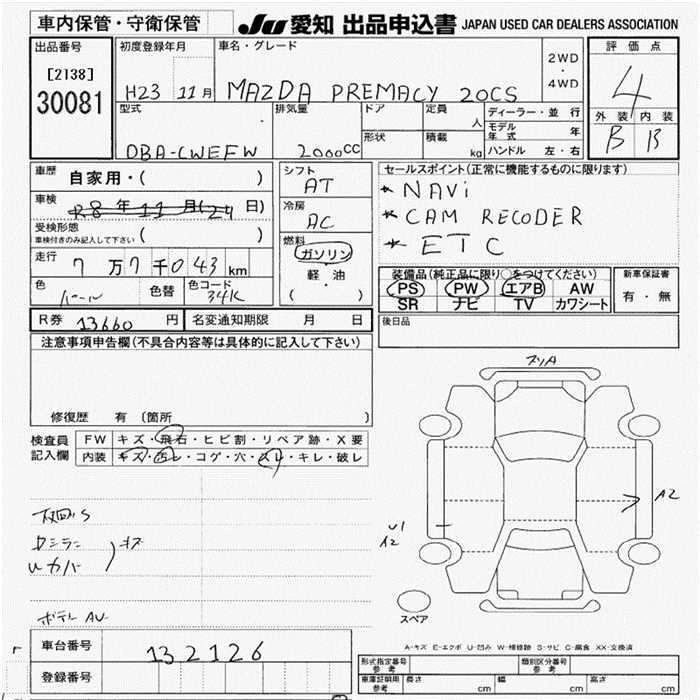 車内保管・守衛保管
JU 愛知 出品申込書 JAPAN USED CAR DEALERS ASSOCIATION
出品番号
[2138]
30081
初度登録年月
H23 11月
車名・グレード
MAZDA PREMACY 20CS
2WD
・
4WD
評価点
4
外装 内装
B B
型式
DBA-CWEFW
排気量
2000CC
ドア
形状
定員 人
積載 kg
ディーラー・並行
モデル年式 年
ハンドル 左・右
車歴
自家用・( )
車検
R8年11月(24日)
受検形態
車検付きのみ記入して下さい ( )
走行
7万7千043km
色
パール
色替
色コード
34K
シフト
AT
冷房
AC
燃料
ガソリン
軽・油
( )
セールスポイント(正常に機能するものに限ります)
* NAVi
* CAM RECODER
* ETC
装備品(純正品に限り○をつけてください)
PS PW エアB AW
SR ナビ TV カワシート
新車保証書
有・無
R券 13660円
名変通知期限 月 日
後日品
注意事項申告欄(不具合内容等は具体的に記入して下さい)
修復歴 有 (箇所 )
検査員
記入欄
FW キズ・飛石・ヒビ割・リペア跡・X要
内装 キズ・汚レ・コゲ・穴・スレ・キレ・破レ
下回りS
キズ
カバー
ボデー AU
スリA
A2
U1
A2
スペア
A-キズ E-エクボ U-凹み W-補修跡 S-サビ C-腐食 XX-交換済
車台番号
132126
登録番号
形式指定番号
参考
類別区分番号
参考
車庫証明用
参考
長さ cm
幅 cm
高さ cm